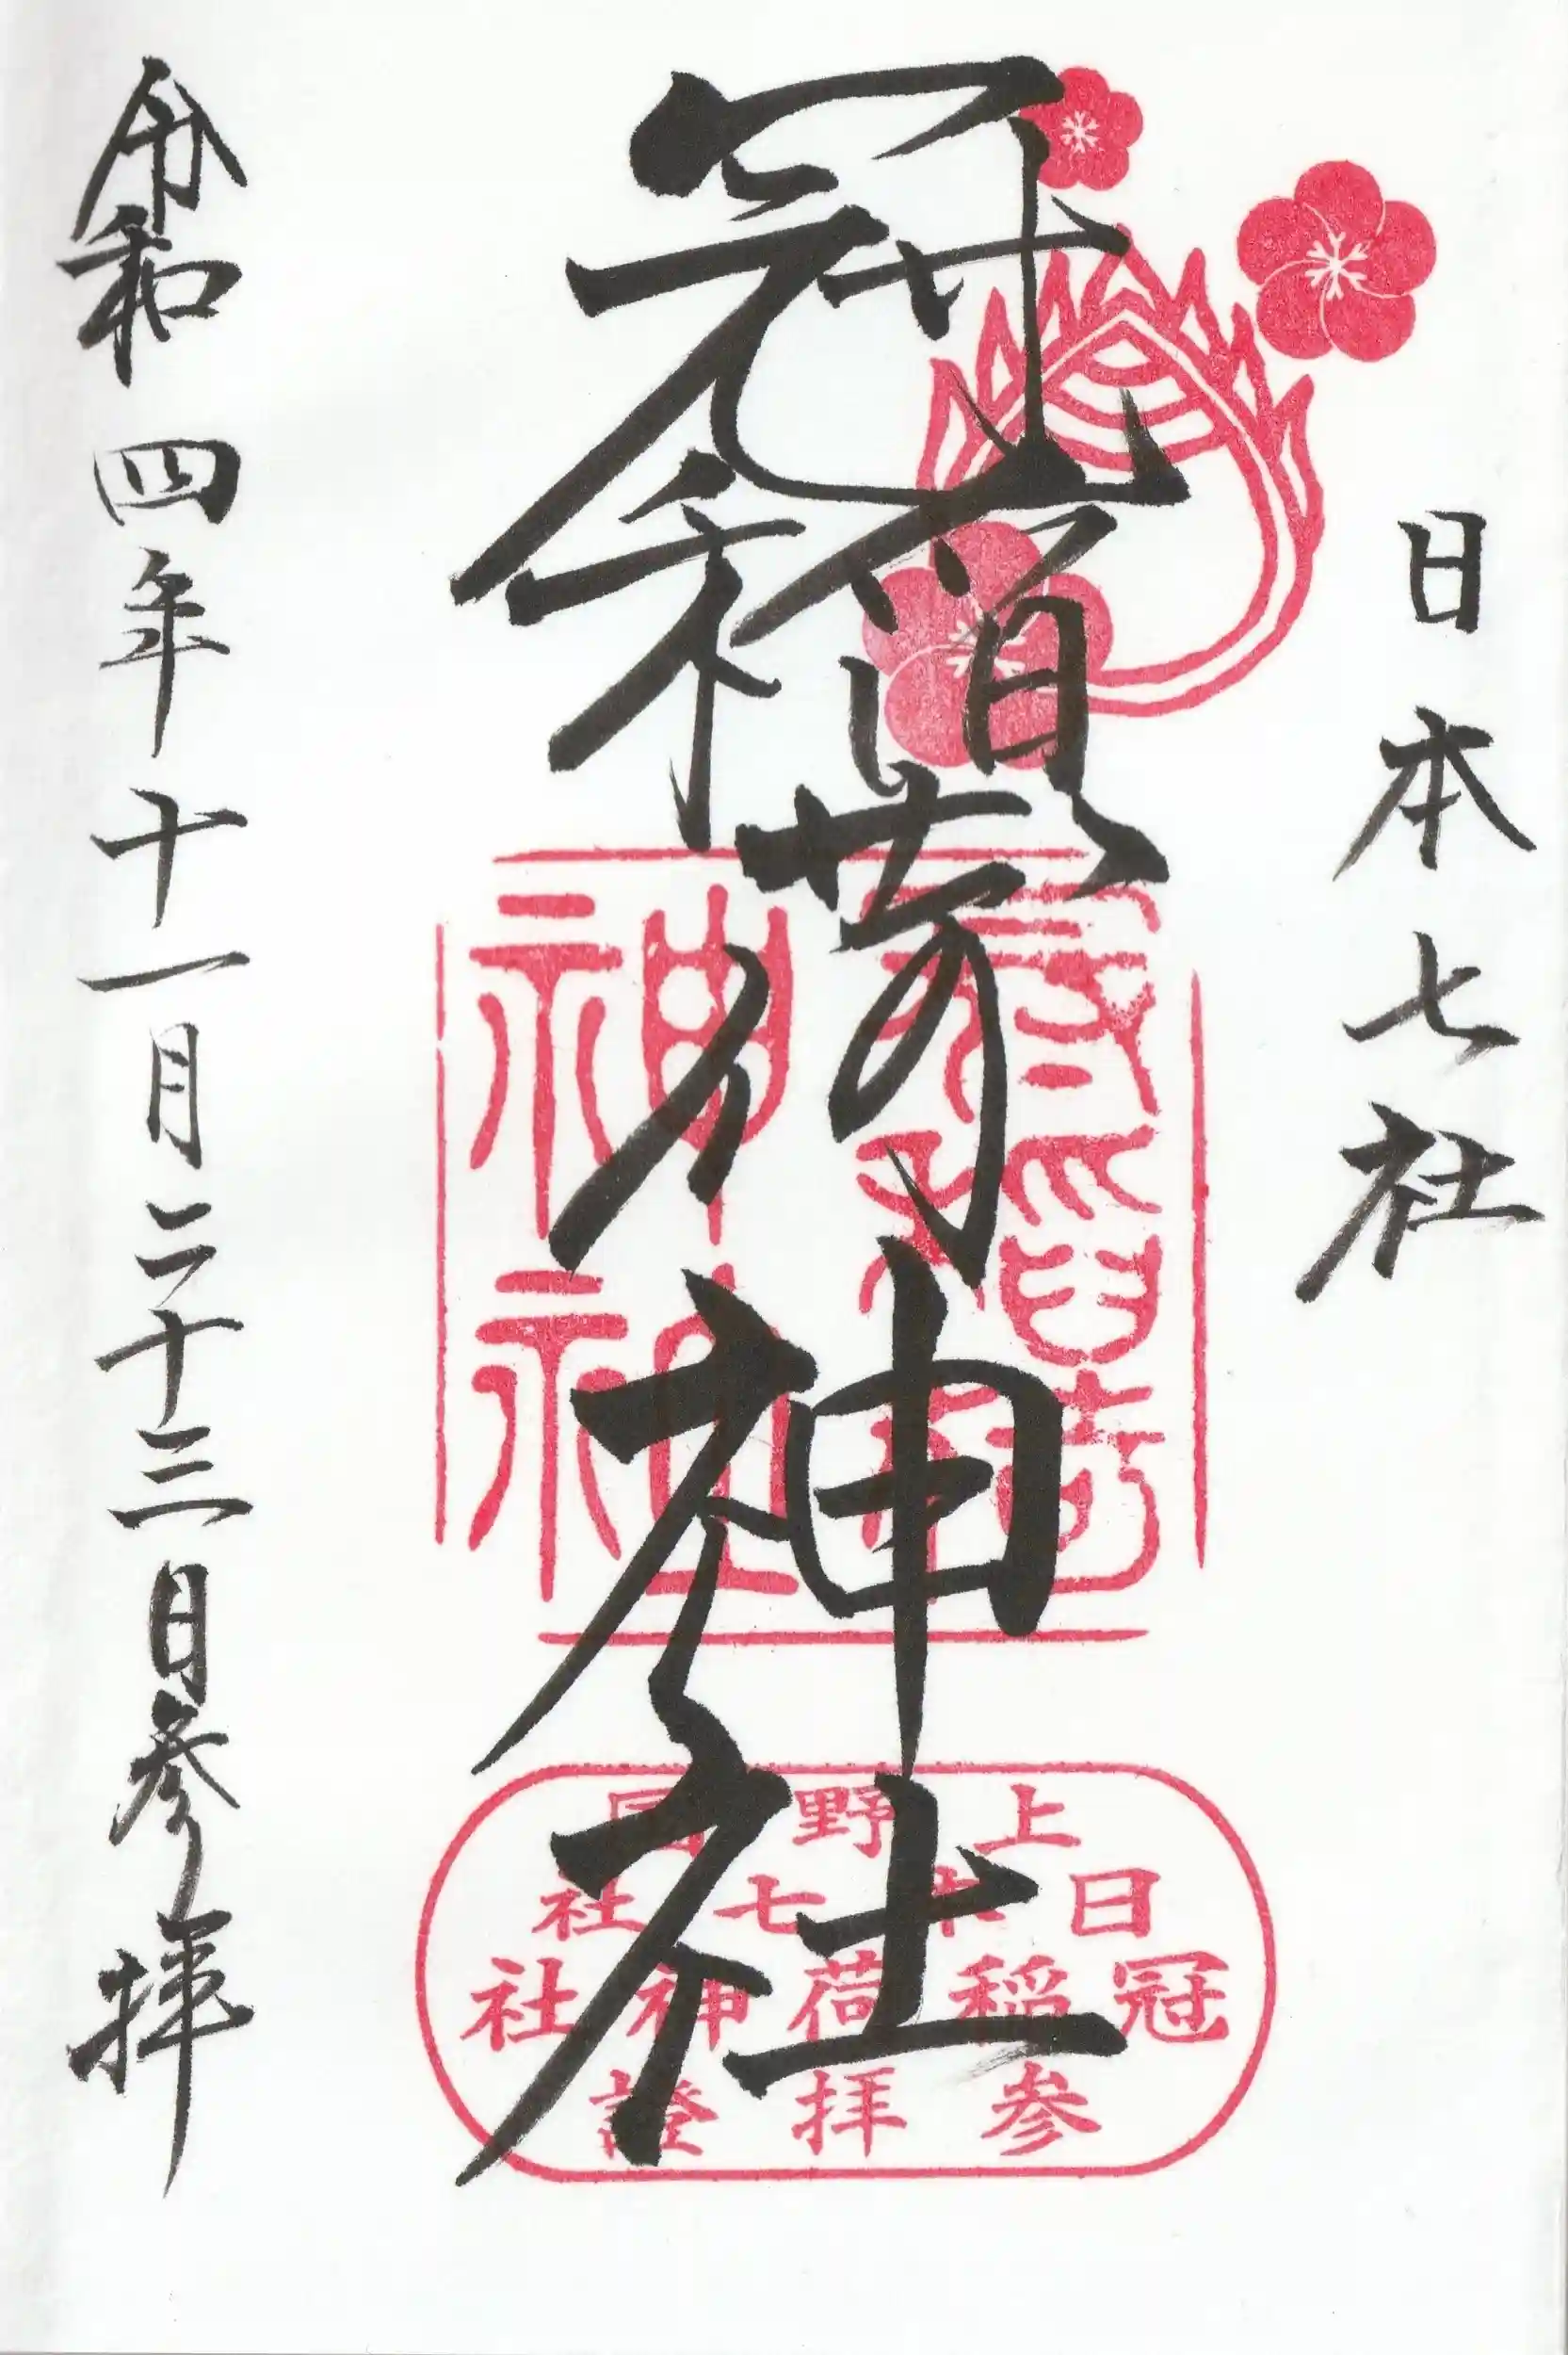 日本七社
冠稲荷神社
冠稲荷
神社
上野國
日本七社
冠稲荷神社
参拝證
令和四年十一月二十三日参拝